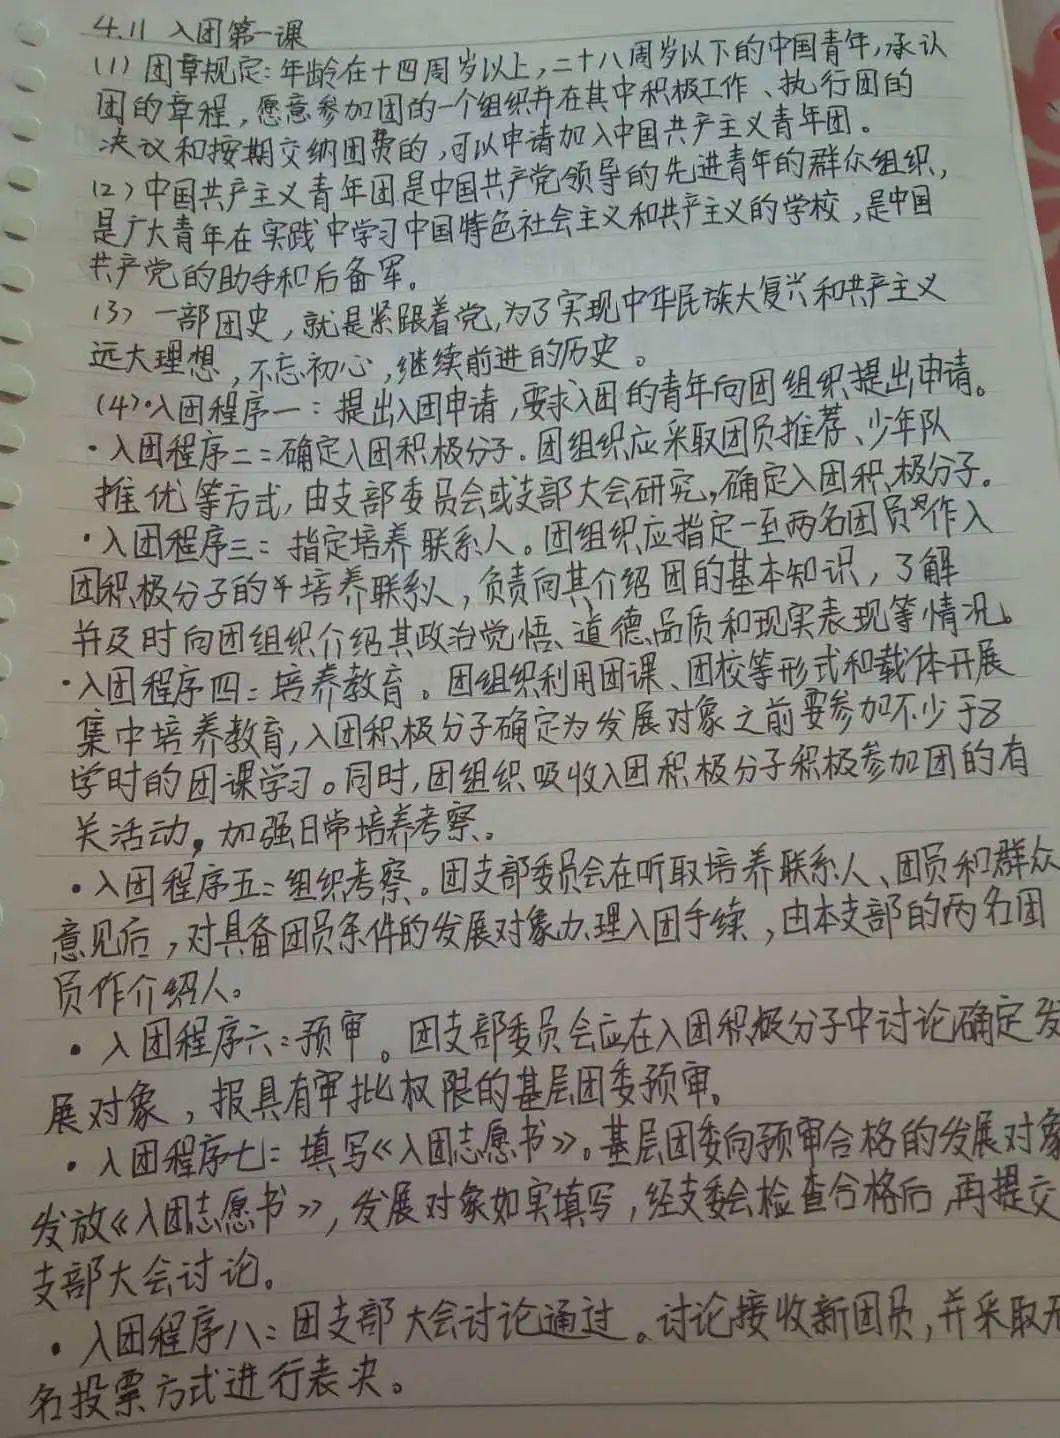 4.11 入团第一课
(1) 团章规定:年龄在十四周岁以上,二十八周岁以下的中国青年,承认
团的章程,愿意参加团的一个组织并在其中积极工作、执行团的
决议和按期交纳团费的,可以申请加入中国共产主义青年团。
(2)中国共产主义青年团是中国共产党领导的先进青年的群众组织,
是广大青年在实践中学习中国特色社会主义和共产主义的学校,是中国
共产党的助手和后备军。
(3) 一部团史,就是紧跟着党,为了实现中华民族大复兴和共产主义
远大理想,不忘初心,继续前进的历史。
(4)·入团程序一:提出入团申请,要求入团的青年向团组织提出申请。
·入团程序二:确定入团积极分子.团组织应采取团员推荐、少年队
推优等方式,由支部委员会或支部大会研究,确定入团积极分子.
·入团程序三:指定培养联系人。团组织应指定一至两名团员作入
团积极分子的培养联系人,负责向其介绍团的基本知识,了解
并及时向团组织介绍其政治觉悟、道德品质和现实表现等情况。
·入团程序四:培养教育。团组织利用团课、团校等形式和载体开展
集中培养教育,入团积极分子确定为发展对象之前要参加不少于8
学时的团课学习。同时,团组织吸收入团积极分子积极参加团的有
关活动,加强日常培养考察。
·入团程序五:组织考察。团支部委员会在听取培养联系人、团员和群众
意见后,对具备团员条件的发展对象办理入团手续,由本支部的两名团
员作介绍人。
·入团程序六:预审。团支部委员会应在入团积极分子中讨论确定发
展对象,报具有审批权限的基层团委预审。
·入团程序七:填写《入团志愿书》。基层团委向预审合格的发展对象
发放《入团志愿书》,发展对象如实填写,经支委会检查合格后,再提交
支部大会讨论。
·入团程序八:团支部大会讨论通过。讨论接收新团员,并采取无
名投票方式进行表决。